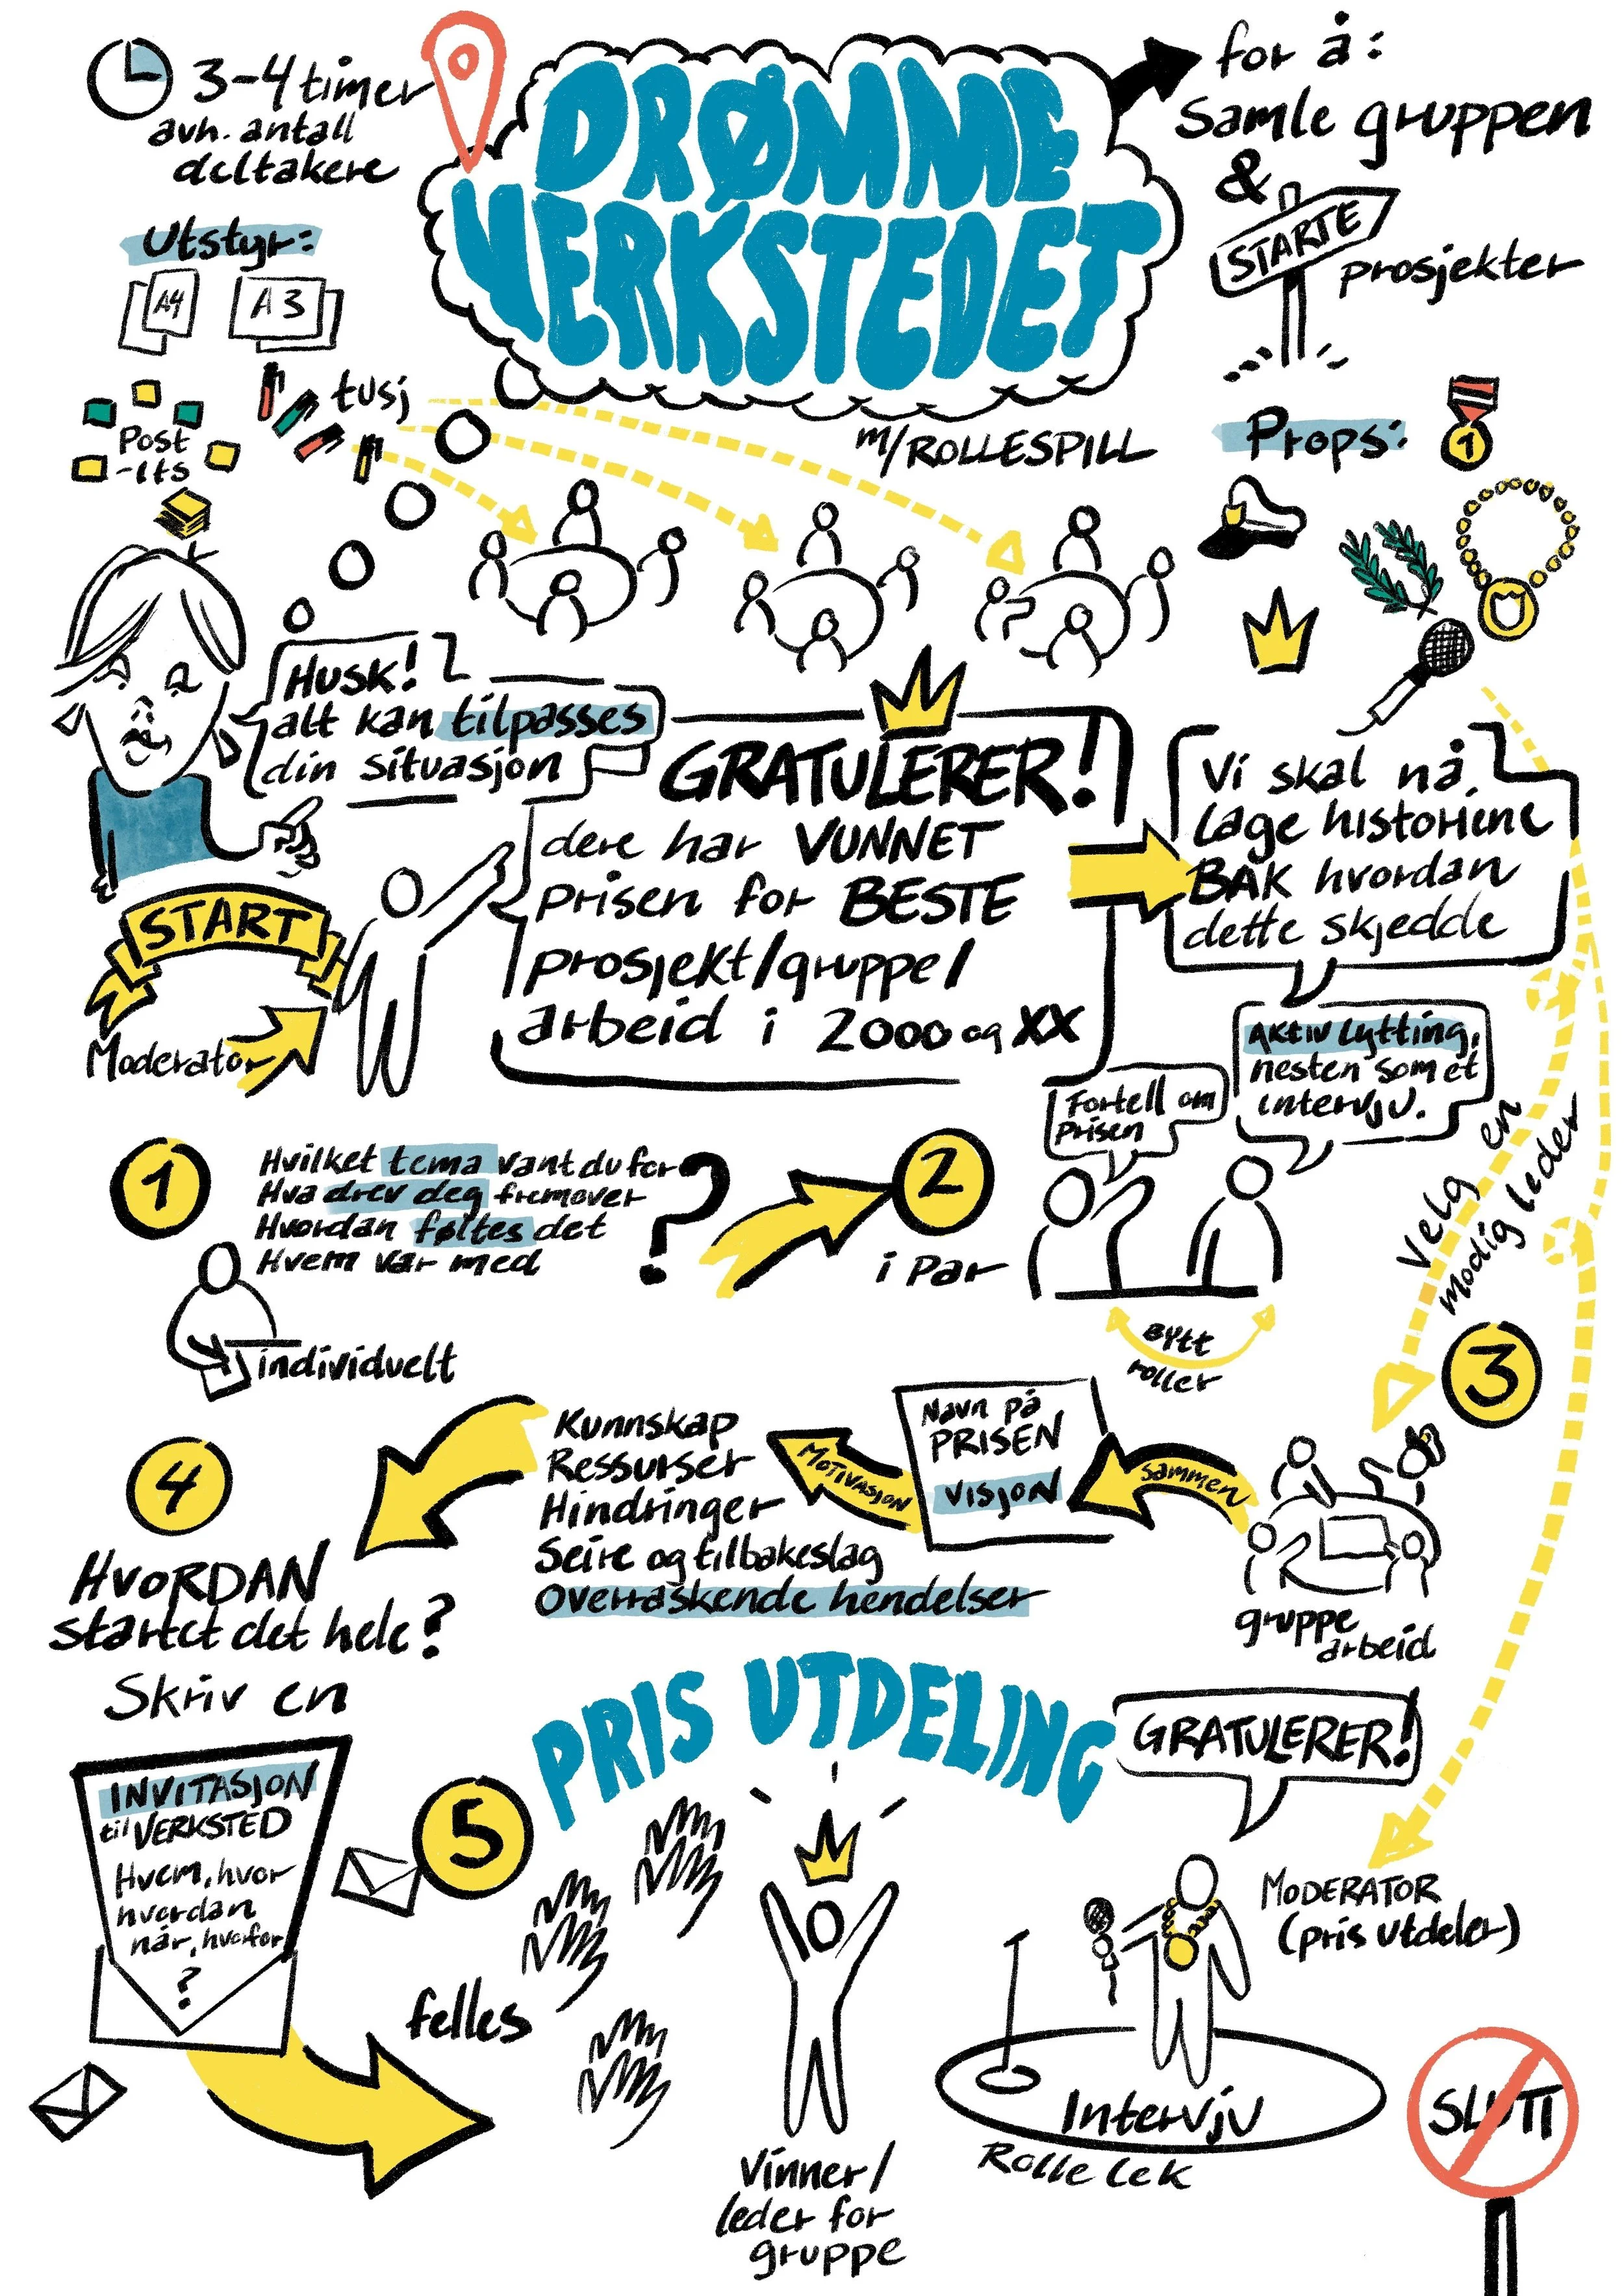 3-4 timer
avh. antall
deltakere
DRØMME
VERKSTEDET
m/ROLLESPILL
for å:
samle gruppen
&
STARTE
prosjekter
Utstyr:
A4
A3
tusj
Post
-its
Props:
1
HUSK!
alt kan tilpasses
din situasjon
START
Moderator
GRATULERER!
dere har VUNNET
prisen for BESTE
prosjekt/gruppe/
arbeid i 2000 og XX
Vi skal nå
lage historiene
BAK hvordan
dette skjedde
1
Hvilket tema vant du for
Hva drev deg fremover
Hvordan føltes det
Hvem var med
?
individuelt
2
i par
Fortell om
prisen
Aktiv lytting,
nesten som et
intervju.
Bytt
roller
Velg en
modig leder
3
gruppe
arbeid
sammen
Navn på
PRISEN
VISJON
MOTIVASJON
Kunnskap
Ressurser
Hindringer
Seire og tilbakeslag
Overraskende hendelser
4
HVORDAN
startet det hele?
Skriv en
INVITASJON
til VERKSTED
Hvem, hvor
hvordan
når, hvorfor
?
5
felles
PRIS UTDELING
GRATULERER!
Vinner/
leder for
gruppe
MODERATOR
(pris utdeler)
Intervju
Rolle lek
SLUTT